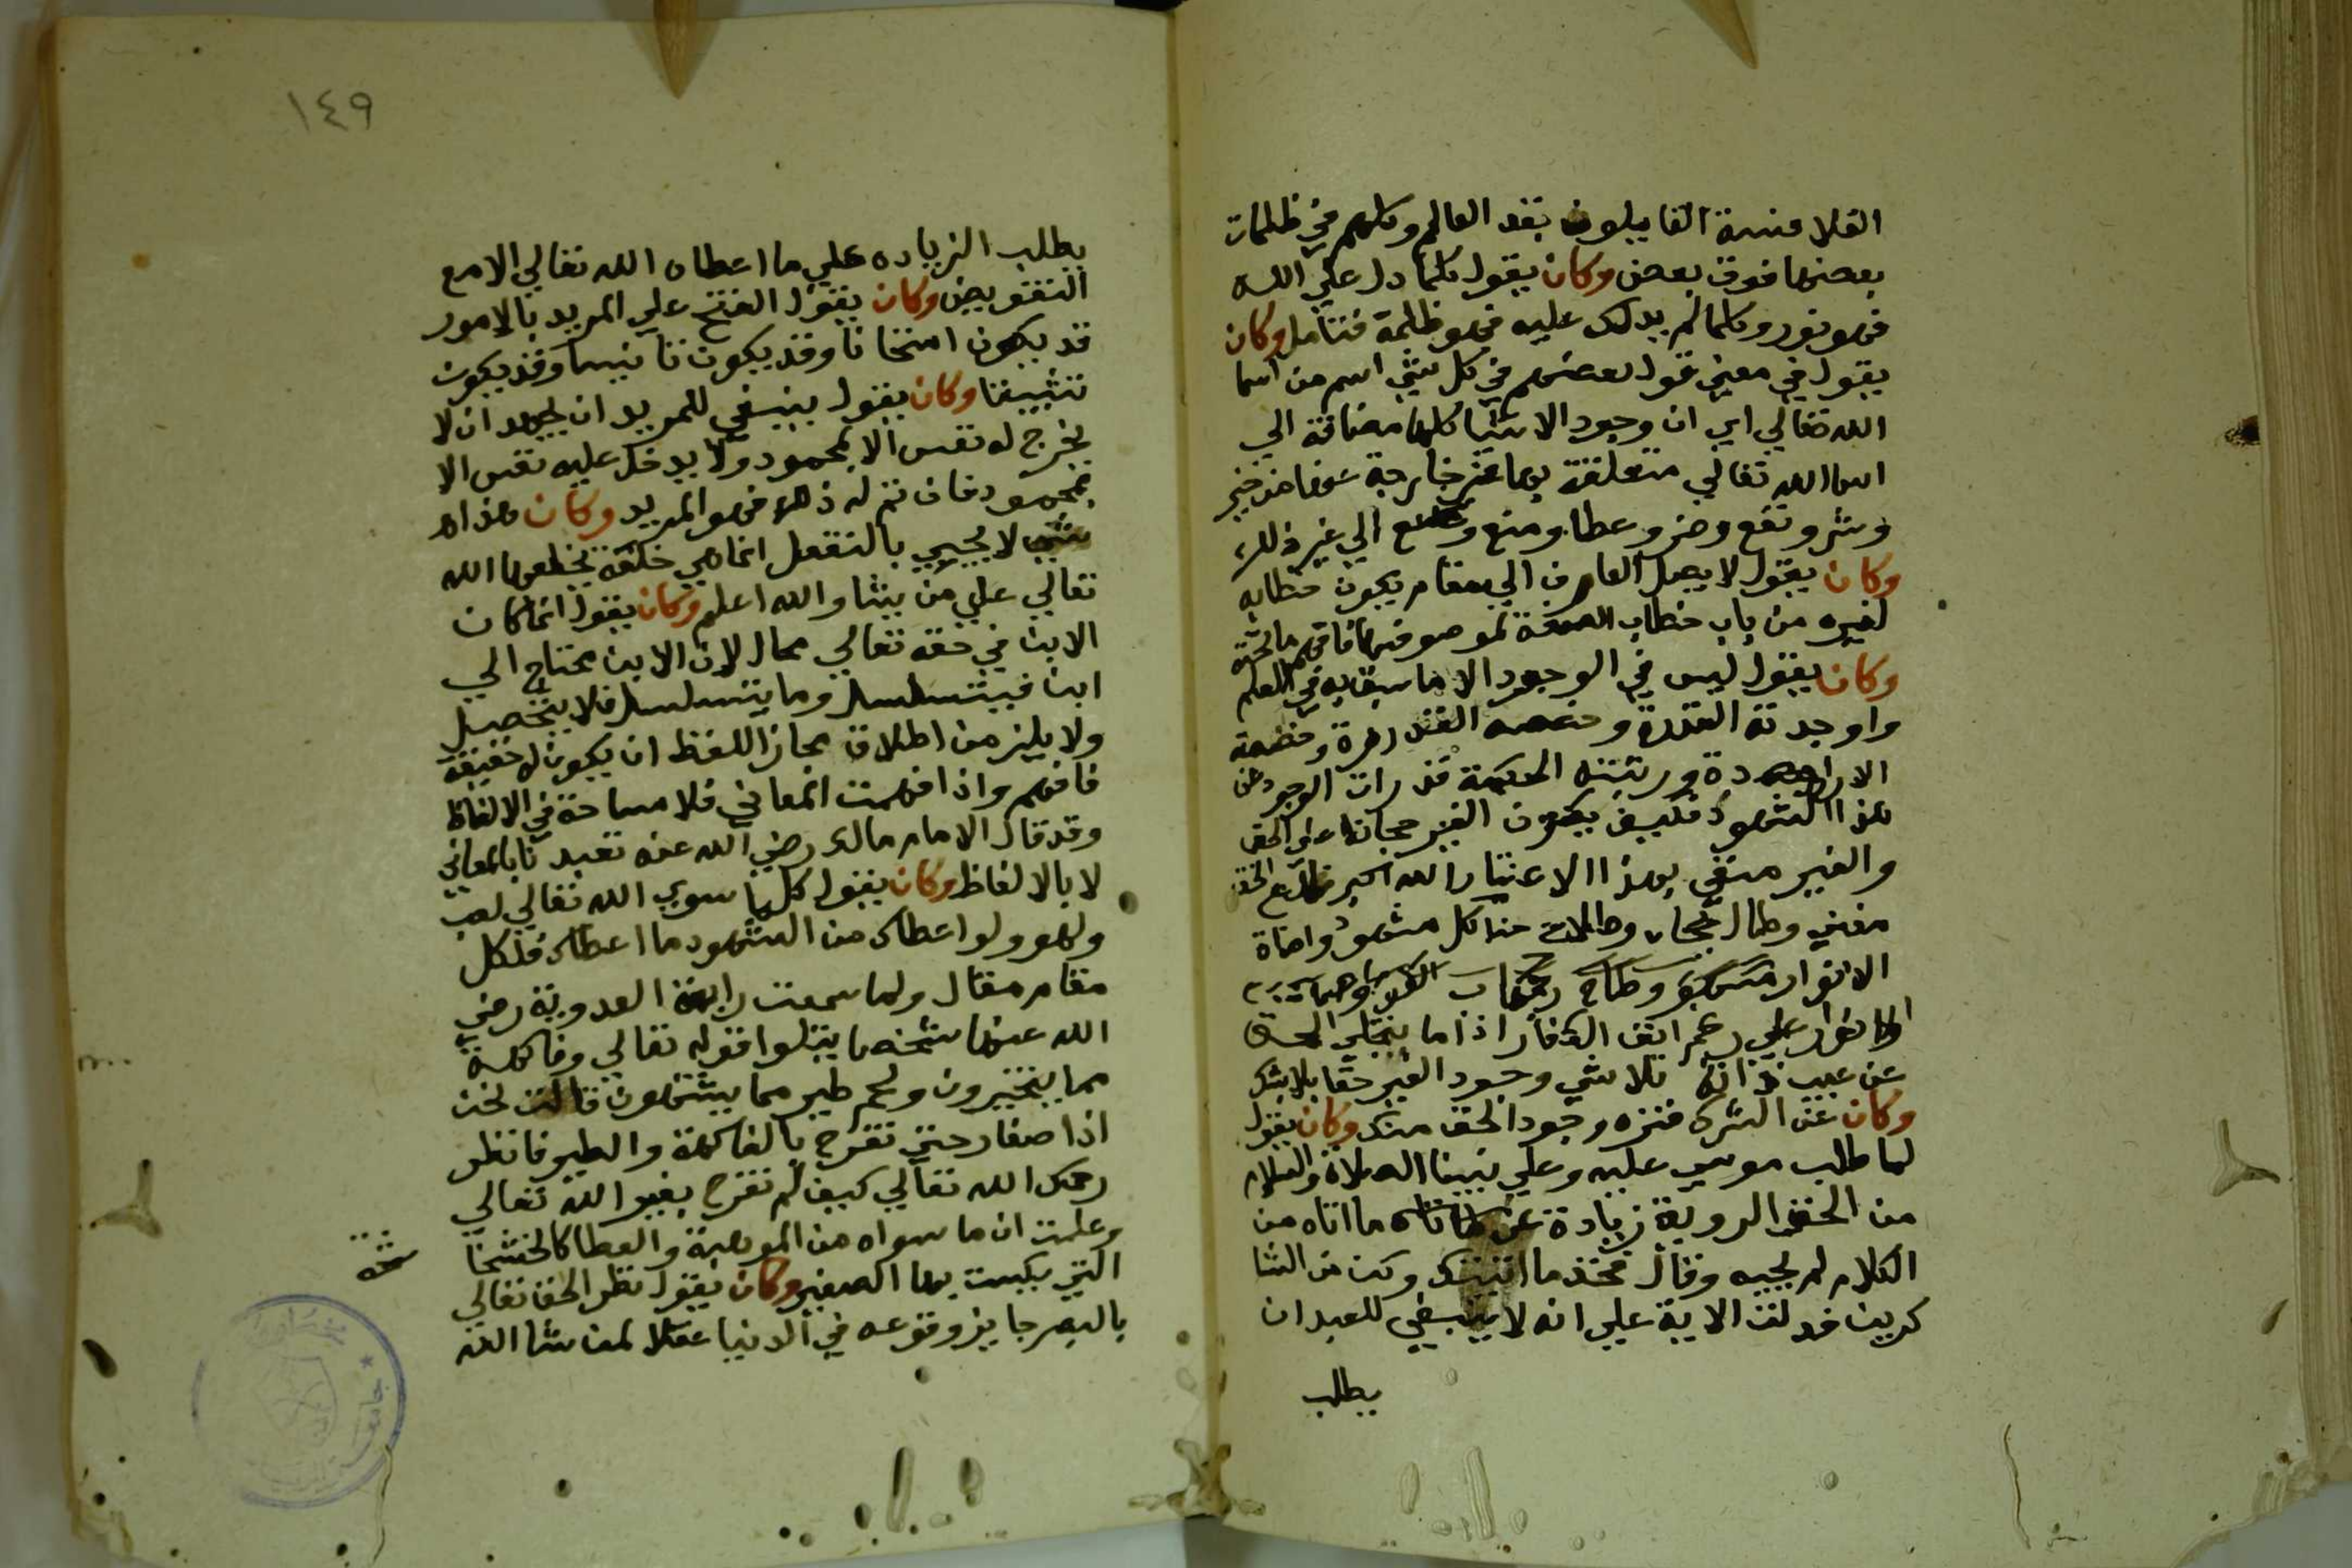 الفلاسفة القايلون بقدم العالم وكلهم في ظلمات
بعضها فوق بعض وكان يقول كلما دل علي الله
فهو نور وكلما لم يدلك عليه فهو ظلمة فتامل وكان
يقول في معني قول بعضهم في كل شي اسم من اسما
الله تعالي اي ان وجود الاشيا كلها مضافة الي
اسما الله تعالي متعلقة بها غير خارجة عنها من خير
وشر ونفع وضر وعطا ومنع الي غير ذلك
وكان يقول لا يصل العارف الي مقام يكون خطابه
لغيره من باب خطاب الصفة لموصوفها فافهم
وكان يقول ليس في الوجود الا ما سبق به في العلم
واوجدته القدرة وخصصه
الارادة ورتبته الحكمة فذرات الوجود
هذا الشهود فكيف يكون الغير حجابا علي الحق
والغير منفي بهذا الاعتبار الله اكبر
مغني وطال حجاب كل مشهود واضاة
الانوار
علي رغم انف الكفار اذا ما يتجلي الحق
عن عيب ذاته تلاشي وجود الغير حقا بلا شك
وكان عن الشرك فنزه وجود الحق منك وكان يقول
لما طلب موسي عليه وعلي نبينا الصلاة والسلام
من الحق الروية زيادة عن ما اتاه من
الكلام لم يجبه وقال فخذ ما اتيتك وكن من الشا
كرين فدلت الاية علي انه لا ينبغي للعبد ان
يطلب
١٤٩
يطلب الزياده علي ما اعطاه الله تعالي الا مع
التفويض وكان يقول الفتح علي المريد بالامور
قد يكون امتحانا وقد يكون تانيسا وقد يكون
تثبيتا وكان يقول ينبغي للمريد ان يجهد ان لا
يخرج له نفس الا بمحمود ولا يدخل عليه نفس الا
بمحمود فان تم له ذلك فهو المريد وكان هذا
شي لا يجيي بالتفعل انما هي خلعة يخلعها الله
تعالي علي من يشا والله اعلم وكان يقول انما كان
الاين في حقه تعالي محال لان الاين محتاج الي
اين فيتسلسل وما يتسلسل فلا يتحصل
ولا يلزم من اطلاق مجاز اللفظ ان يكون له حقيقة
فافهم واذا فهمت المعاني فلا مشاحة في الالفاظ
وقد قال الامام مالك رضي الله عنه تعبدنا بالمعاني
لا بالالفاظ وكان يقول كل ما سوي الله تعالي لعب
ولهو ولو اعطاك من الشهود ما اعطاك فلكل
مقام مقال ولما سمعت رابعة العدوية رضي
الله عنها شخصا يتلوا قوله تعالي وفاكهة
مما يتخيرون ولحم طير مما يشتهون قالت نحن
اذا صغار حتي نفرح بالفاكهة والطير فانظر
رحمك الله تعالي كيف لم تفرح بغير الله تعالي
وعلمت ان ما سواه من الموهبة والعطا كالخشخا
شة
التي يسكت بها الصغير وكان يقول نظر الحق تعالي
بالبصر جايز وقوعه في الدنيا عقلا لمن شا الله